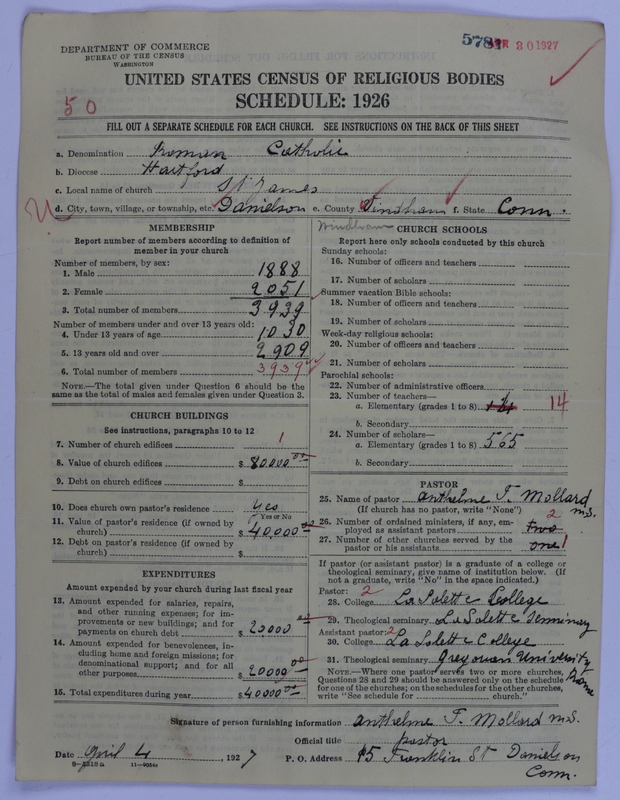 DEPARTMENT OF COMMERCE
BUREAU OF THE CENSUS
WASHINGTON
APR 30 1927
UNITED STATES CENSUS OF RELIGIOUS BODIES
SCHEDULE: 1926
50
FILL OUT A SEPARATE SCHEDULE FOR EACH CHURCH. SEE INSTRUCTIONS ON THE BACK OF THIS SHEET
a. Denomination Roman Catholic
b. Diocese Hartford
c. Local name of church St James
d. City, town, village, or township, etc. Danielson e. County Windham f. State Conn.
Windham
MEMBERSHIP
Report number of members according to definition of
member in your church
Number of members, by sex:
1. Male 1888
2. Female 2051
3. Total number of members 3939
Number of members under and over 13 years old:
4. Under 13 years of age 1030
5. 13 years old and over 2909
6. Total number of members 3939
NOTE.—The total given under Question 6 should be the
same as the total of males and females given under Question 3.
CHURCH BUILDINGS
See instructions, paragraphs 10 to 12
7. Number of church edifices 1
8. Value of church edifices $ 80000 00
9. Debt on church edifices $
10. Does church own pastor's residence Yes
Yes or No
11. Value of pastor's residence (if owned by
church) $ 40,000
12. Debt on pastor's residence (if owned by
church) $
EXPENDITURES
Amount expended by your church during last fiscal year
13. Amount expended for salaries, repairs,
and other running expenses; for im-
provements or new buildings; and for
payments on church debt $ 20000 00
14. Amount expended for benevolences, in-
cluding home and foreign missions; for
denominational support; and for all
other purposes $ 20000 00
15. Total expenditures during year $ 40000 00
CHURCH SCHOOLS
Report here only schools conducted by this church
Sunday schools:
16. Number of officers and teachers
17. Number of scholars
Summer vacation Bible schools:
18. Number of officers and teachers
19. Number of scholars
Week-day religious schools:
20. Number of officers and teachers
21. Number of scholars
Parochial schools:
22. Number of administrative officers
23. Number of teachers—
a. Elementary (grades 1 to 8) 14
b. Secondary
24. Number of scholars—
a. Elementary (grades 1 to 8) 565
b. Secondary
PASTOR
25. Name of pastor Anthelme T. Mollard
(If church has no pastor, write "None") M.S.
26. Number of ordained ministers, if any, em-
ployed as assistant pastors two 2
27. Number of other churches served by the
pastor or his assistants one 1
If pastor (or assistant pastor) is a graduate of a college or
theological seminary, give name of institution below. (If
not a graduate, write "No" in the space indicated.)
Pastor: 2
28. College La Salette College
29. Theological seminary La Salette Seminary
Assistant pastor: 2
30. College La Salette College
31. Theological seminary University
Rome
NOTE.—Where one pastor serves two or more churches,
Questions 28 and 29 should be answered only on the schedule
for one of the churches; on the schedules for the other churches,
write "See schedule for church."
Signature of person furnishing information Anthelme T. Mollard M.S.
Official title Pastor
Date April 4, 1927 P. O. Address Franklin St Danielson
Conn.
8-5318a 11-9054a